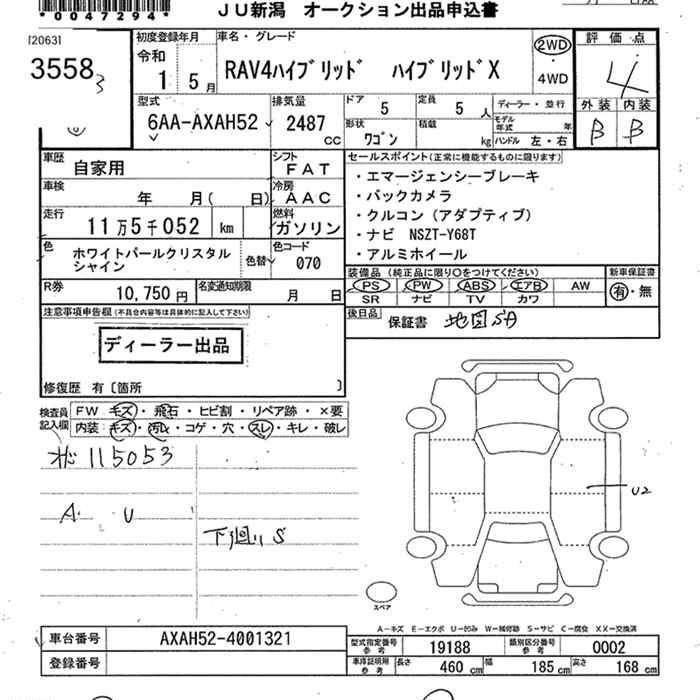 *0047294*
JU新潟 オークション出品申込書
[2063]
3558 3
初度登録年月
令和
1 5月
車名・グレード
RAV4ハイブリッド ハイブリッドX
2WD
・
4WD
評価点
4
外装 内装
B B
型式
6AA-AXAH52
排気量
2487
CC
ドア
5
定員
5 人
形状
ワゴン
積載
kg
ディーラー・並行
モデル年式 年
ハンドル 左・右
車歴
自家用
シフト
FAT
車検
年 月( 日)
冷房
AAC
走行
11万5千052 km
燃料
ガソリン
色
ホワイトパールクリスタル
シャイン
色替
色コード
070
R券
10,750円
名変通知期限
月 日
セールスポイント(正常に機能するものに限ります)
・エマージェンシーブレーキ
・バックカメラ
・クルコン(アダプティブ)
・ナビ NSZT-Y68T
・アルミホイール
装備品(純正品に限り○をつけてください)
PS PW ABS エアB AW
SR ナビ TV カワ
新車保証書
有・無
後日品
保証書 地図SA
注意事項申告欄(不具合内容等は具体的に記入して下さい)
ディーラー出品
修復歴 有〔箇所 〕
検査員記入欄
FW キズ・飛石・ヒビ割・リペア跡・×要
内装:キズ・汚レ・コゲ・穴・スレ・キレ・破レ
115053
A U
下廻りS
U2
スペア
A-キズ E-エクボ U-凹み W-補修跡 S-サビ C-腐食 XX-交換済
車台番号
AXAH52-4001321
登録番号
型式指定番号
参考
19188
類別区分番号
参考
0002
車庫証明用
参考
長さ 460 cm 幅 185 cm 高さ 168 cm